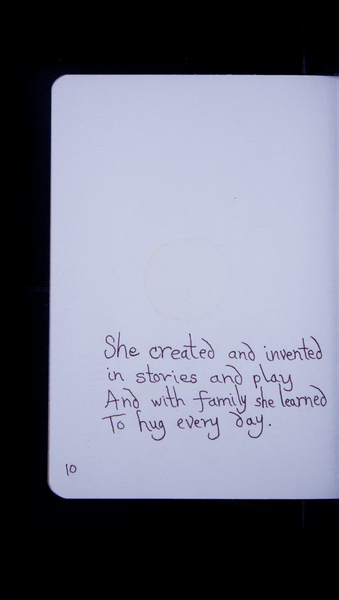 She created and invented
in stories and play
And with family she learned
To hug every day.
10